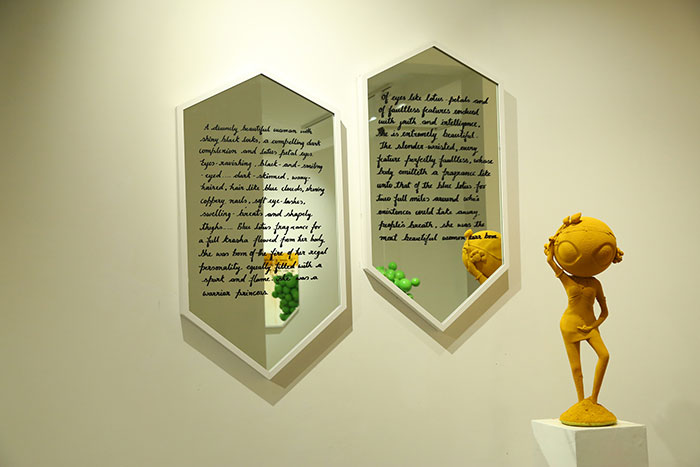 A divinely beautiful woman with
shiny black locks, a compelling dark
complexion and lotus petal eyes
"Eyes-ravishing, black-and-smiling
-eyed.... dark-skinned, wavy-
haired, hair like blue clouds, shining
coppery nails, soft eye-lashes,
swelling-breasts and shapely
thighs.... Blue lotus fragrance for
a full krosha flowed from her body.
She was born of the fire of her regal
personality equally filled with a
spunk and flame. She was a
warrior princess
Of eyes like lotus-petals and
of faultless features endued
with youth and intelligence,
she is extremely beautiful.
The slender-waisted, every
feature perfectly faultless, whose
body emitteth a fragrance like
unto that of the blue lotus for
two full miles around who's
existence could take away
people's breath, she was the
most beautiful woman ever born